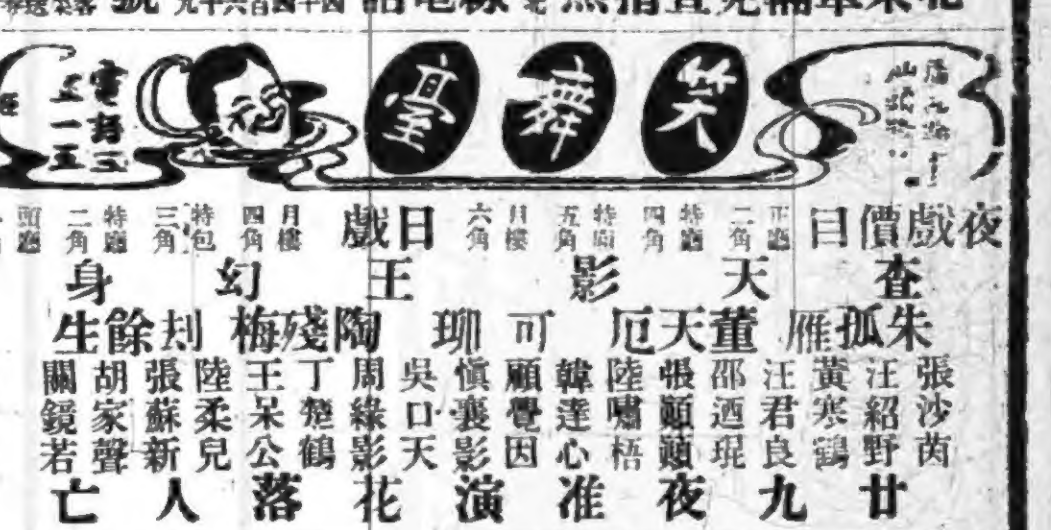 笑舞臺
夜戲價目 正廳二角 特廳四角 五角 月樓六角 日戲 月樓四角 特包三角 特廳二角 頭廳
查天影 王幻身
朱孤雁 董天厄 可聊 陶殘梅 刦餘生
張沙茵
汪紹野
黃寒鶴
汪君良
邵迺琨
張顛顛
陸嘯梧
韓達心
顧覺因
愼襄影
吳口天
周綠影
丁楚鶴
王呆公
陸柔兒
張蘇新
胡家聲
關鏡若
廿九夜准演花落人亡